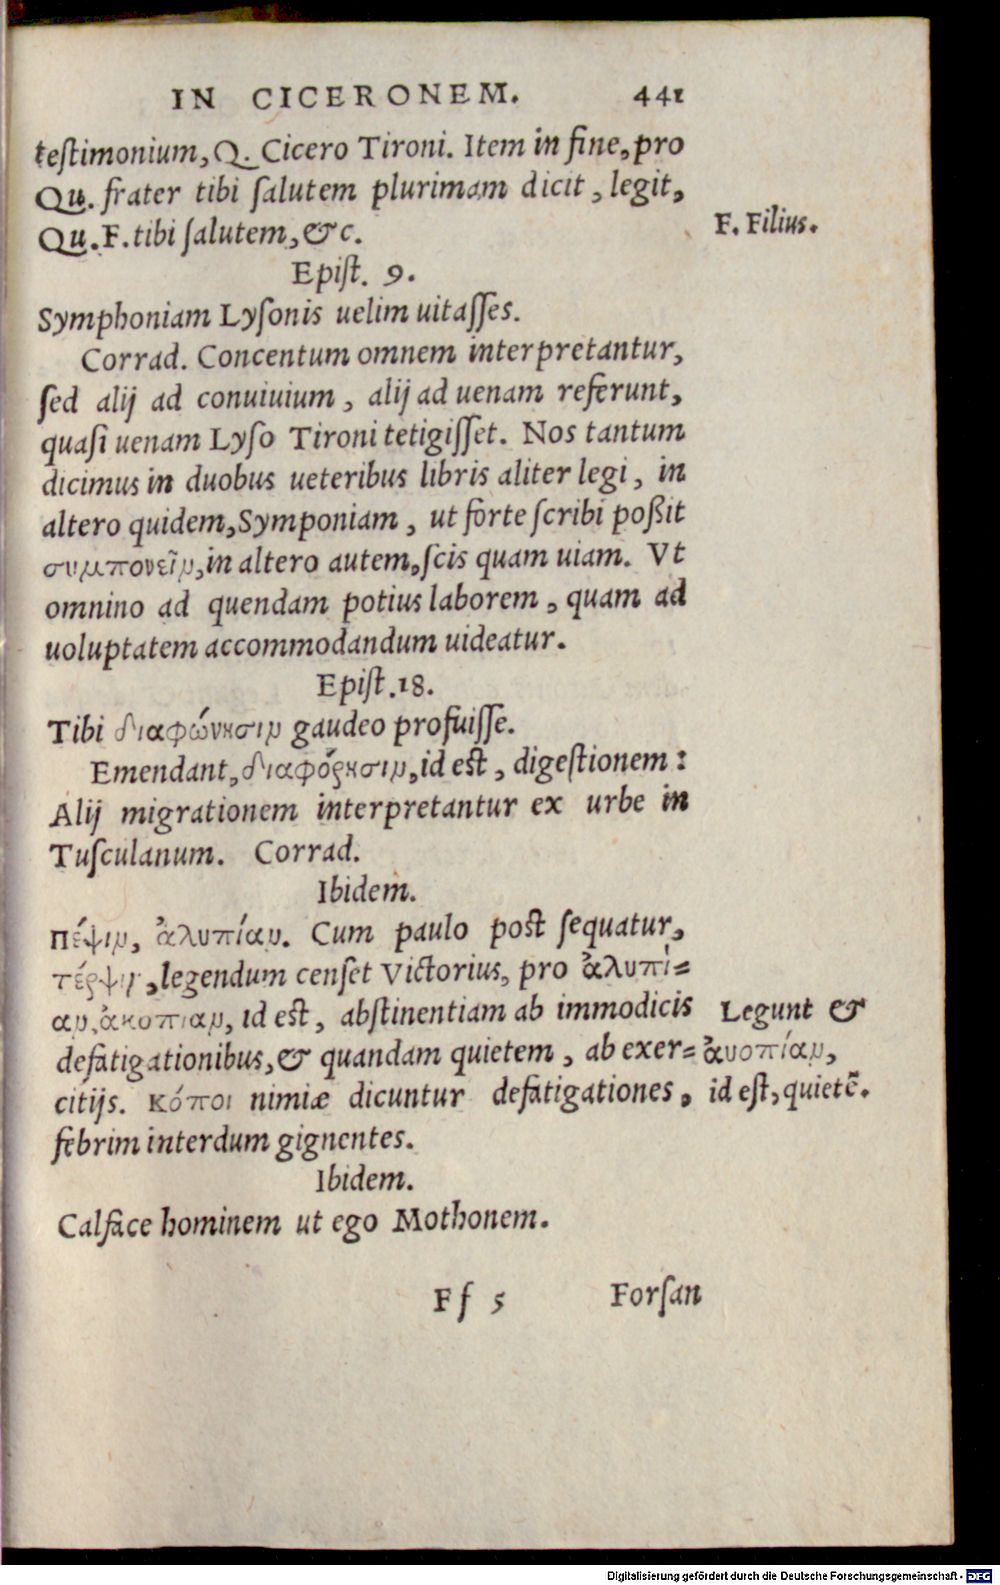 IN CICERONEM. 441
testimonium, Q. Cicero Tironi. Item in fine, pro
Qu. frater tibi salutem plurimam dicit, legit,
Qu. F. tibi salutem, &c.
F. Filius.
Epist. 9.
Symphoniam Lysonis uelim uitasses.
Corrad. Concentum omnem interpretantur,
sed alij ad conuiuium, alij ad uenam referunt,
quasi uenam Lyso Tironi tetigisset. Nos tantum
dicimus in duobus ueteribus libris aliter legi, in
altero quidem, Symponiam, ut forte scribi poßit
συμπονεῖν, in altero autem, scis quam uiam. Vt
omnino ad quendam potius laborem, quam ad
uoluptatem accommodandum uideatur.
Epist. 18.
Tibi διαφώνησιν gaudeo profuisse.
Emendant, διαφόρησιν, id est, digestionem:
Alij migrationem interpretantur ex urbe in
Tusculanum. Corrad.
Ibidem.
πέψιν, ἀλυπίαν. Cum paulo post sequatur,
τέρψιν, legendum censet Victorius, pro ἀλυπί=
αν, ἀκοπίαν, id est, abstinentiam ab immodicis
defatigationibus, & quandam quietem, ab exer=
citijs. κόποι nimiæ dicuntur defatigationes,
febrim interdum gignentes.
Legunt &
ἀυοπίαν,
id est, quietē.
Ibidem.
Calface hominem ut ego Mothonem.
Ff 5 Forsan
Digitalisierung gefördert durch die Deutsche Forschungsgemeinschaft - DFG